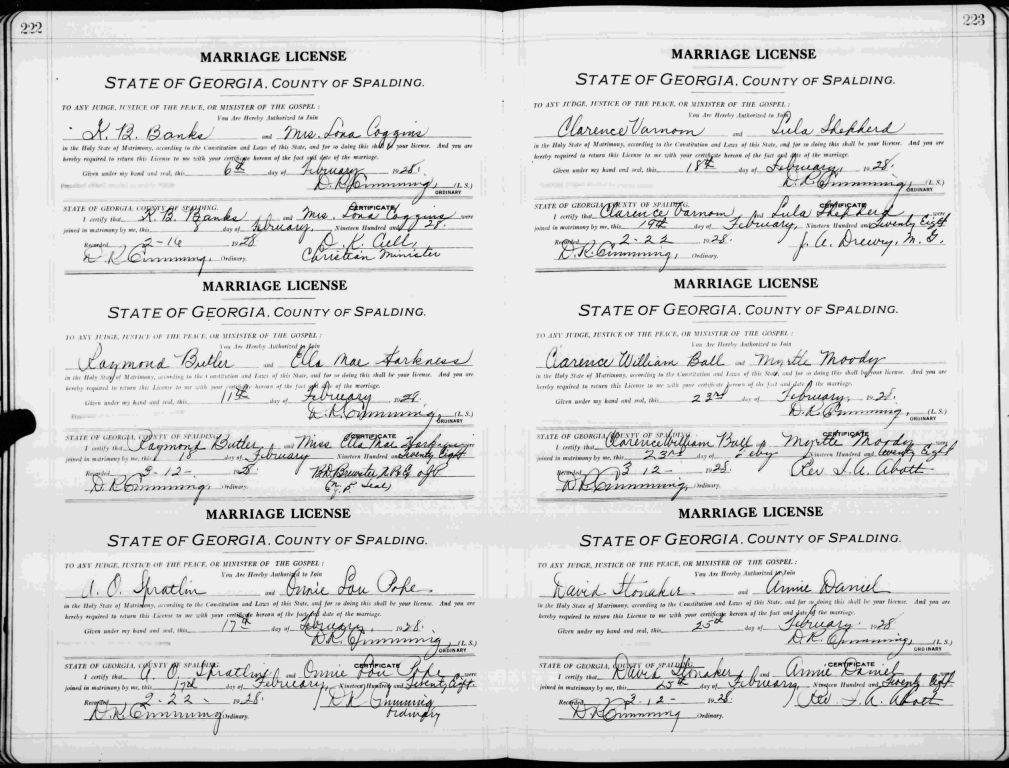 222
MARRIAGE LICENSE
STATE OF GEORGIA, COUNTY OF SPALDING.
TO ANY JUDGE, JUSTICE OF THE PEACE, OR MINISTER OF THE GOSPEL:
You Are Hereby Authorized to Join
K. B. Banks and Mrs. Lona Coggins
in the Holy State of Matrimony, according to the Constitution and Laws of this State, and for so doing this shall be your license. And you are
hereby required to return this License to me with your certificate hereon of the fact and date of the marriage.
Given under my hand and seal, this 6th day of February 1928.
D. R. Cumming, (L. S.)
ORDINARY
CERTIFICATE
STATE OF GEORGIA, COUNTY OF SPALDING.
I certify that K. B. Banks and Mrs. Lona Coggins were
joined in matrimony by me, this 8 day of February, Nineteen Hundred and 28.
Recorded 2-16 1928 D. K.
D. R. Cumming, Ordinary. Christian Minister
MARRIAGE LICENSE
STATE OF GEORGIA, COUNTY OF SPALDING.
TO ANY JUDGE, JUSTICE OF THE PEACE, OR MINISTER OF THE GOSPEL:
You Are Hereby Authorized to Join
Raymond Butler and Ella Mae Harkness
in the Holy State of Matrimony, according to the Constitution and Laws of this State, and for so doing this shall be your license. And you are
hereby required to return this License to me with your certificate hereon of the fact and date of the marriage.
Given under my hand and seal, this 11th day of February 1928.
D. R. Cumming, (L. S.)
ORDINARY
CERTIFICATE
STATE OF GEORGIA, COUNTY OF SPALDING.
I certify that Raymond Butler and Miss Ella Mae Harkness were
joined in matrimony by me, this 18 day of February Nineteen Hundred and Twenty Eight
Recorded 3-12- 1928. Brewster
D. R. Cumming, Ordinary. Seal)
MARRIAGE LICENSE
STATE OF GEORGIA, COUNTY OF SPALDING.
TO ANY JUDGE, JUSTICE OF THE PEACE, OR MINISTER OF THE GOSPEL:
You Are Hereby Authorized to Join
A. O. Spratlin and Onnie Lou Pope
in the Holy State of Matrimony, according to the Constitution and Laws of this State, and for so doing this shall be your license. And you are
hereby required to return this License to me with your certificate hereon of the fact and date of the marriage.
Given under my hand and seal, this 17th day of February, 1928.
D. R. Cumming, (L. S.)
ORDINARY
CERTIFICATE
STATE OF GEORGIA, COUNTY OF SPALDING.
I certify that A. O. Spratlin and Onnie Lou Pope were
joined in matrimony by me, this 17th day of February, Nineteen Hundred and Twenty Eight.
Recorded 2-22- 1928. D R Cumming
D. R. Cumming Ordinary. Ordinary
223
MARRIAGE LICENSE
STATE OF GEORGIA, COUNTY OF SPALDING.
TO ANY JUDGE, JUSTICE OF THE PEACE, OR MINISTER OF THE GOSPEL:
You Are Hereby Authorized to Join
Clarence Varnom and Lula Shepherd
in the Holy State of Matrimony, according to the Constitution and Laws of this State, and for so doing this shall be your license. And you are
hereby required to return this License to me with your certificate hereon of the fact and date of the marriage.
Given under my hand and seal, this 18th day of February, 1928.
D. R. Cumming, (L. S.)
ORDINARY
CERTIFICATE
STATE OF GEORGIA, COUNTY OF SPALDING.
I certify that Clarence Varnom and Lula Shepherd were
joined in matrimony by me, this 19th day of February, Nineteen Hundred and Twenty Eight
Recorded 2-22 1928. J. A. Drewry, M. G.
D. R. Cumming, Ordinary.
MARRIAGE LICENSE
STATE OF GEORGIA, COUNTY OF SPALDING.
TO ANY JUDGE, JUSTICE OF THE PEACE, OR MINISTER OF THE GOSPEL:
You Are Hereby Authorized to Join
Clarence William Ball and Myrtle Moody
in the Holy State of Matrimony, according to the Constitution and Laws of this State, and for so doing this shall be your license. And you are
hereby required to return this License to me with your certificate hereon of the fact and date of the marriage.
Given under my hand and seal, this 23rd day of February, 1928.
D. R. Cumming, (L. S.)
ORDINARY
CERTIFICATE
STATE OF GEORGIA, COUNTY OF SPALDING.
I certify that Clarence William Ball and Myrtle Moody were
joined in matrimony by me, this 23rd day of Feby Nineteen Hundred and Twenty Eight
Recorded 3 12- 1928. Rev. Abott
D. R. Cumming, Ordinary.
MARRIAGE LICENSE
STATE OF GEORGIA, COUNTY OF SPALDING.
TO ANY JUDGE, JUSTICE OF THE PEACE, OR MINISTER OF THE GOSPEL:
You Are Hereby Authorized to Join
David Stonaker and Annie Daniel
in the Holy State of Matrimony, according to the Constitution and Laws of this State, and for so doing this shall be your license. And you are
hereby required to return this License to me with your certificate hereon of the fact and date of the marriage.
Given under my hand and seal, this 25th day of February. 1928
D. R. Cumming, (L. S.)
ORDINARY
CERTIFICATE
STATE OF GEORGIA, COUNTY OF SPALDING.
I certify that David Stonaker and Annie Daniel were
joined in matrimony by me, this 25th day of February, Nineteen Hundred and Twenty Eight.
Recorded 3-12- 1928. Rev. Abott
D. R. Cumming Ordinary.